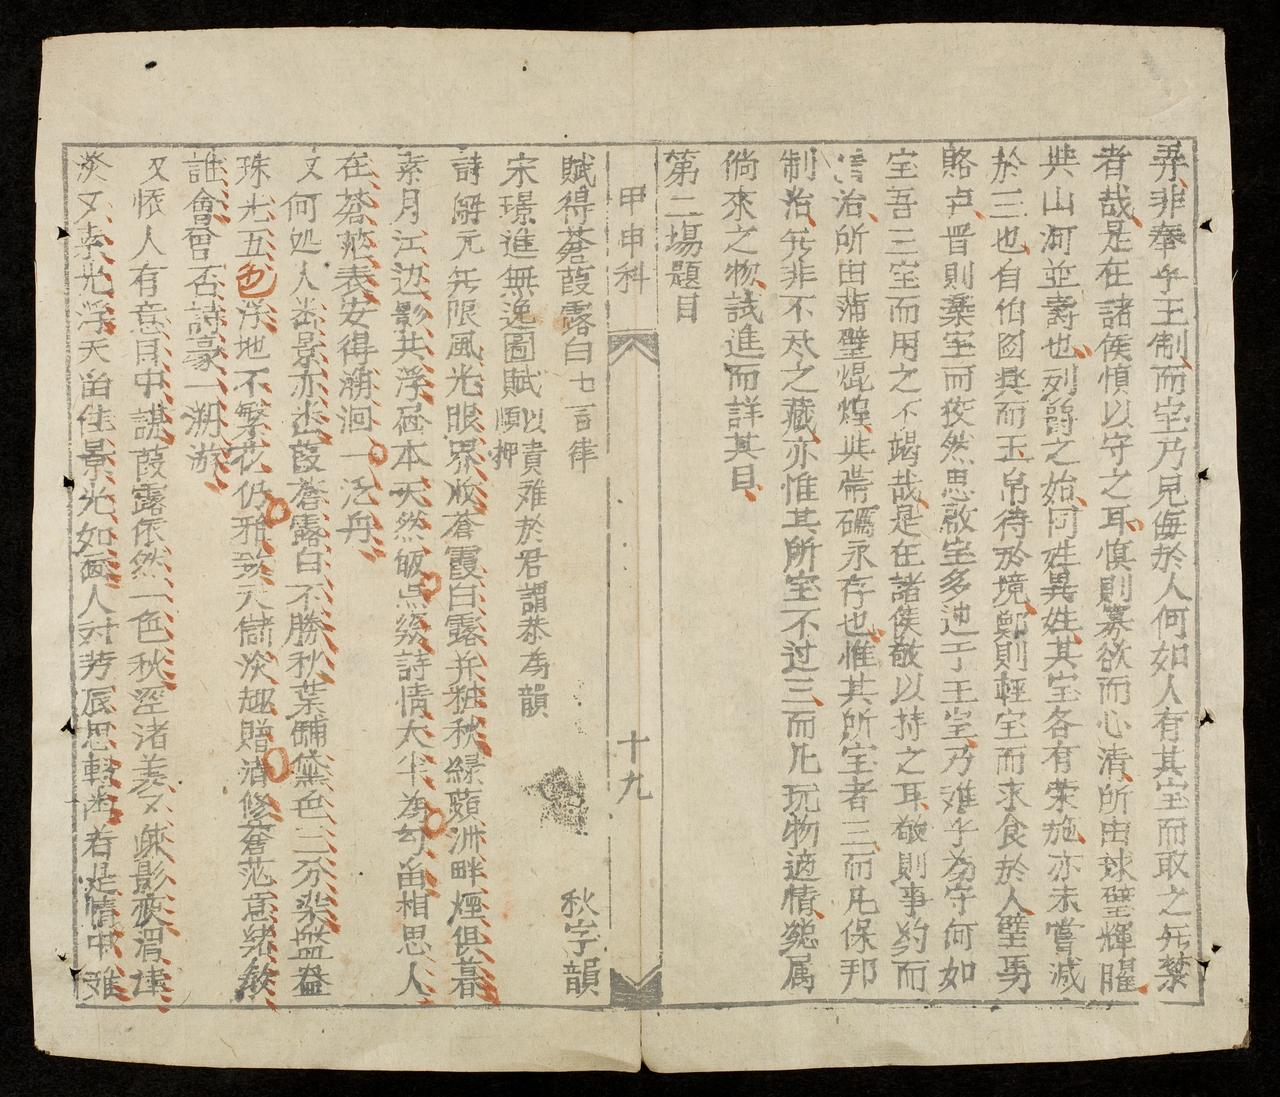 弄非奉乎王制而宝乃見侮於人何如人有其宝而敢之旡禁
者哉是在諸侯慎以守之耳慎則寡欲而心清所由琜璧輝曜
与山河並壽也列爵之始同姓異姓其宝各有荣施亦未嘗减
於三也自伯国興而玉帛待於境鄭則輕宝而求食於人璧馬
賂卢晋則棄宝而 然思啟宝多迚于王室乃难乎為守何如
宝吾三宝而用之不竭哉是在諸侯敬以持之耳敬則事約而
 治所由蒲璧焜煌與帶礪永存也惟其所宝者三而凡保邦
制治旡非不 之藏亦惟其所宝不过三而凡玩物適情 属
倘來之物試進而詳其目
第二場題目
甲申科
十九
賦得蒼葭露白七言律 秋字韻
宋璟進無逸圖賦以責难於君謂恭為韻順押
詩解元旡限風光眼界收蒼葭白露弁 秋緑蘋洲畔煙俱暮
素月江边影共浮 本天然皈点綴詩情大半為勾畄相思人
在蒼茫表安得溯洄一泛舟
又何処人 景亦 葭蒼露白不勝秋葉鋪黛色三分染盤
珠光五色浮地不繁花仍雅致天儲淡趣贈清修蒼茫意绪 
誰會會否詩豪一溯游
又 人有意目中謀葭露依然一色秋 渚 又疎影 渭 
 又素光浮天畄佳景光如画人对芳辰思轉 若是情中难